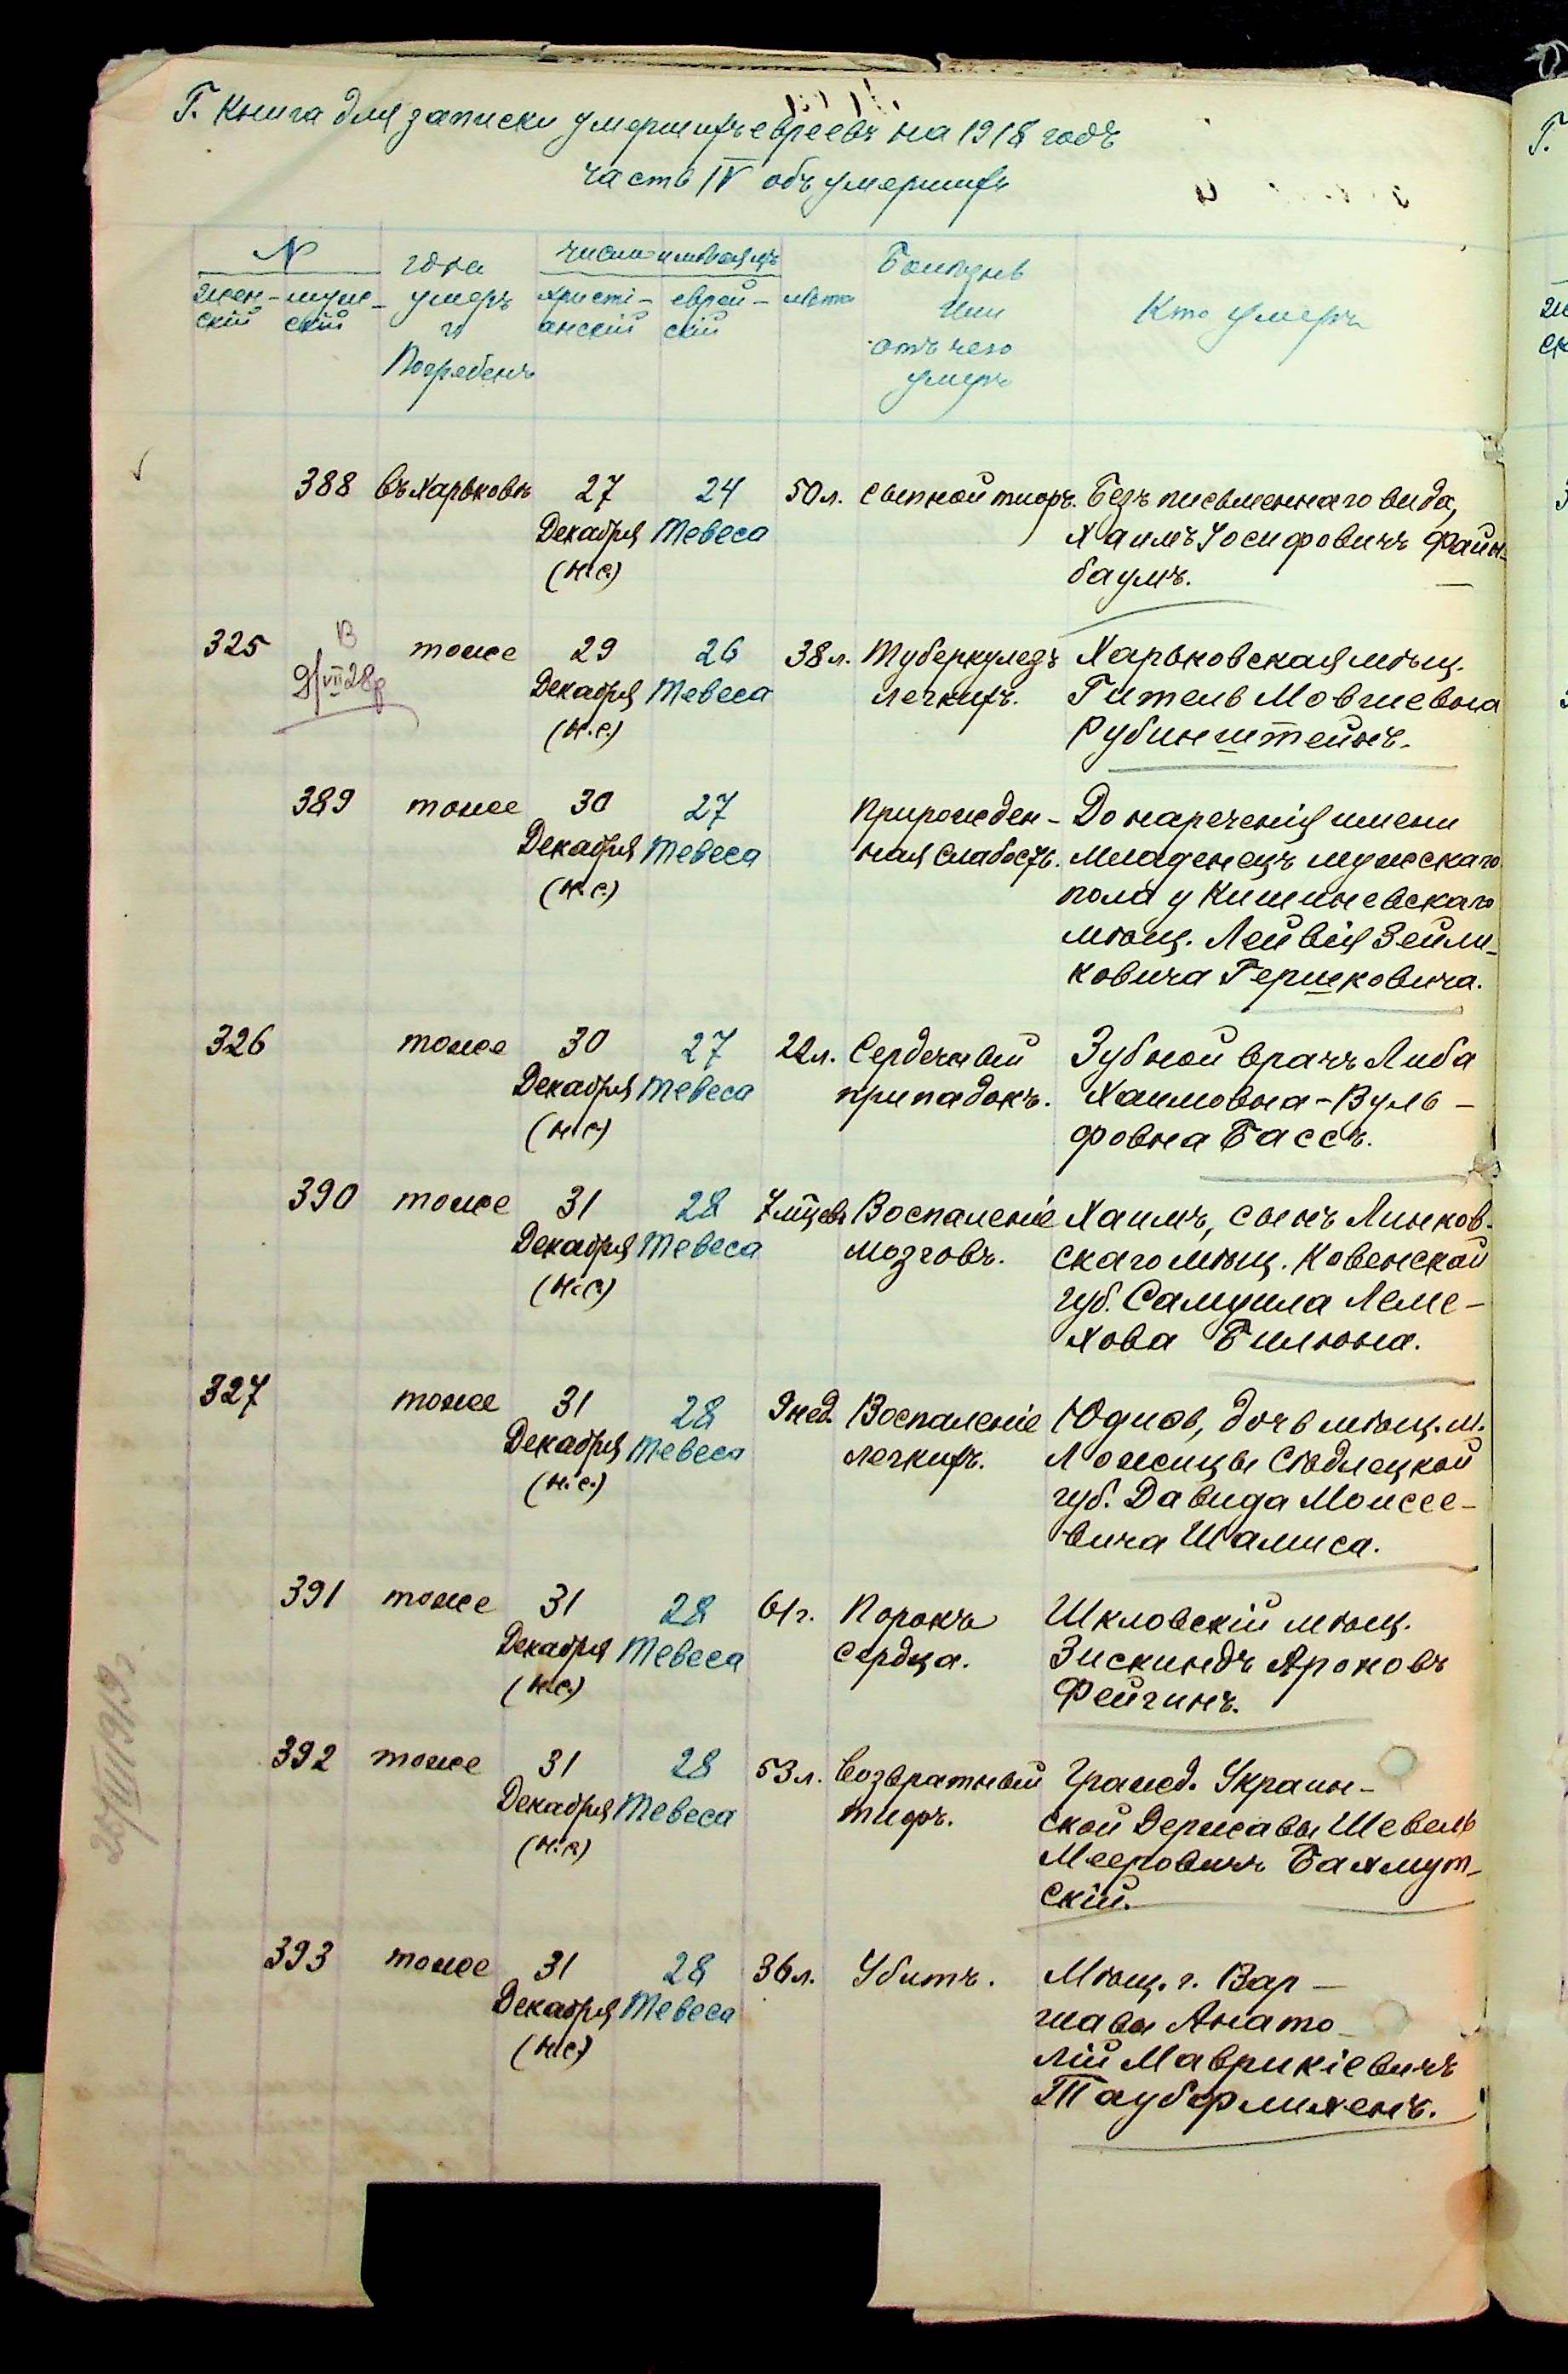 Г. Книга для записки умершихъ евреевъ на 1918 годъ
часть IV объ умершихъ
№
жен-
скій
муже-
скій
гдѣ
умеръ
и
Погребенъ
число и мѣсяцъ
христі-
анскій
еврей-
скій
лѣта
Болѣзнь
или
отъ чего
умеръ
Кто умеръ
388 въ Харьковѣ 27 24 50 л. сыпной тифъ. Безъ письменнаго вида,
Декабря Тевеса Хаимъ Іосифовичъ Файн-
(н.с.) баумъ.
325 В тоже 29 26 38 л. Туберкулезъ Харьковская мѣщ.
9/VII 28 Декабря Тевеса легкихъ. Гитель Мовшевна
(н.с.) Рубинштейнъ.
389 тоже 30 27 Прирожден- До нареченія имени
Декабря Тевеса ная слабость. младенецъ мужскаго
(н.с.) пола у Кишиневскаго
мѣщ. Лейвія Зейли-
ковича Гершковича.
326 тоже 30 27 22 л. Сердечный Зубной врачъ Либа
Декабря Тевеса припадокъ. Хаимовна-Вуль-
(н.с.) фовна Бассъ.
390 тоже 31 28 7 мѣцевъ Воспаленіе Хаимъ, сынъ Линков-
Декабря Тевеса мозговъ. скаго мѣщ. Ковенской
(н.с.) губ. Самуила Леме-
хова Билюна.
327 тоже 31 28 9 нед. Воспаленіе Юдись, дочь мѣщ. м.
Декабря Тевеса легкихъ. Ложицы Сѣдлецкой
(н.с.) губ. Давида Моисее-
вича Шамиса.
391 тоже 31 28 61 г. Порокъ Шкловскій мѣщ.
Декабря Тевеса сердца. Зискиндъ Ароновъ
(н.с.) Фейгинъ.
392 тоже 31 28 53 л. Возвратный Гражд. Украин-
Декабря Тевеса тифъ. ской Державы Шевель
(н.с.) Мееровичъ Бахмут-
скій.
393 тоже 31 28 36 л. Убитъ. Мѣщ. г. Вар-
Декабря Тевеса шавы Анато-
(н.с.) лій Маврикіевичъ
Тауберлихенъ.